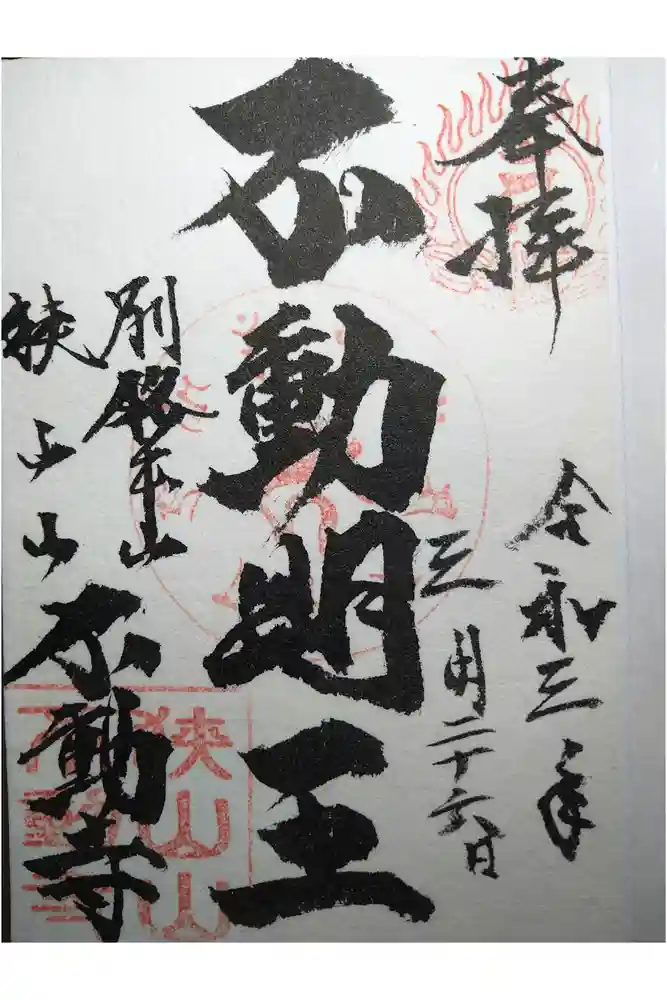 奉拝
令和三年
三月二十六日
不動明王
別格本山
狭山山
不動寺
狭山山
不動寺